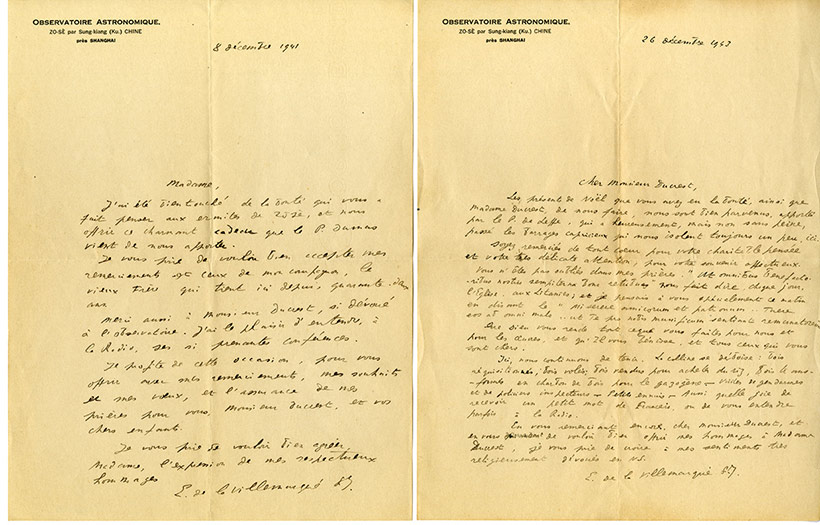 OBSERVATOIRE ASTRONOMIQUE.
ZO-SÈ par Sung-kiang (Ku.) CHINE
près SHANGHAI
8 décembre 1941
Madame,
J'ai été bien touché de la bonté qui vous a
fait penser aux ermites de Zôsè, et nous
offrir ce charmant cadeau que le P. Dumas
vient de nous apporter.
Je vous prie de vouloir bien accepter mes
remerciements et ceux de mon compagnon, le
vieux Frère qui tient ici depuis quarante-deux
ans
Merci aussi à Monsieur Ducrest, si dévoué
à l'observatoire. J'ai le plaisir d'entendre, à
la Radio, ses si prenantes conférences.
Je profite de cette occasion, pour vous
offrir avec mes remerciements, mes souhaits
et mes vœux, et l'assurance de mes
prières pour vous, Monsieur Ducrest, et vos
chers enfants.
Je vous prie de vouloir bien agréer,
Madame, l'expression de mes respectueux
hommages
E. de la Villemarqué S.J.
OBSERVATOIRE ASTRONOMIQUE.
ZO-SÈ par Sung-kiang (Ku.) CHINE
près SHANGHAI
26 décembre 1943
Cher Monsieur Ducrest,
Les présents de Noël que vous avez eu la bonté, ainsi que
Madame Ducrest, de nous faire, nous sont bien parvenus, apportés
par le P. de qui a heureusement, mais non sans peine,
passé les barrages capricieux qui nous isolent toujours un peu, ici.
Soyez remerciés de tout cœur pour votre charité, la pensée
et votre très délicate attention, pour votre souvenir affectueux.
Vous n'êtes pas oubliés dans mes prières. "Ut omnibus benefacto-
ribus nostris sempiterna bona retribuas" nous fait dire, chaque jour,
l'Église, aux Litanies; et je pensais à vous spécialement ce matin
en disant le "Miserere amicorum et patronum... Tuere
eos ab omni malo... ut Te pro nobis munificum sentiant remuneratorem
Que Dieu vous rende tout ce que vous faites pour nous et
pour les œuvres, et qu'Il vous bénisse, et tous ceux qui vous
sont chers.
Ici, nous continuons de tenir. La colline se déboise: bois
réquisitionnés, bois volés, bois vendus pour acheter du riz, bois
formés en charbon de bois pour le gazogène — visites de gendarmes
et de policiers inspecteurs — Petits ennuis — Aussi quelle joie de
recevoir un petit mot de Français, ou de vous entendre
parfois à la Radio.
En vous remerciant encore, cher Monsieur Ducrest, et
en vous de vouloir bien offrir mes hommages à Madame
Ducrest, je vous prie de croire à mes sentiments très
religieusement dévoués en N.S.
E. de la Villemarqué S.J.